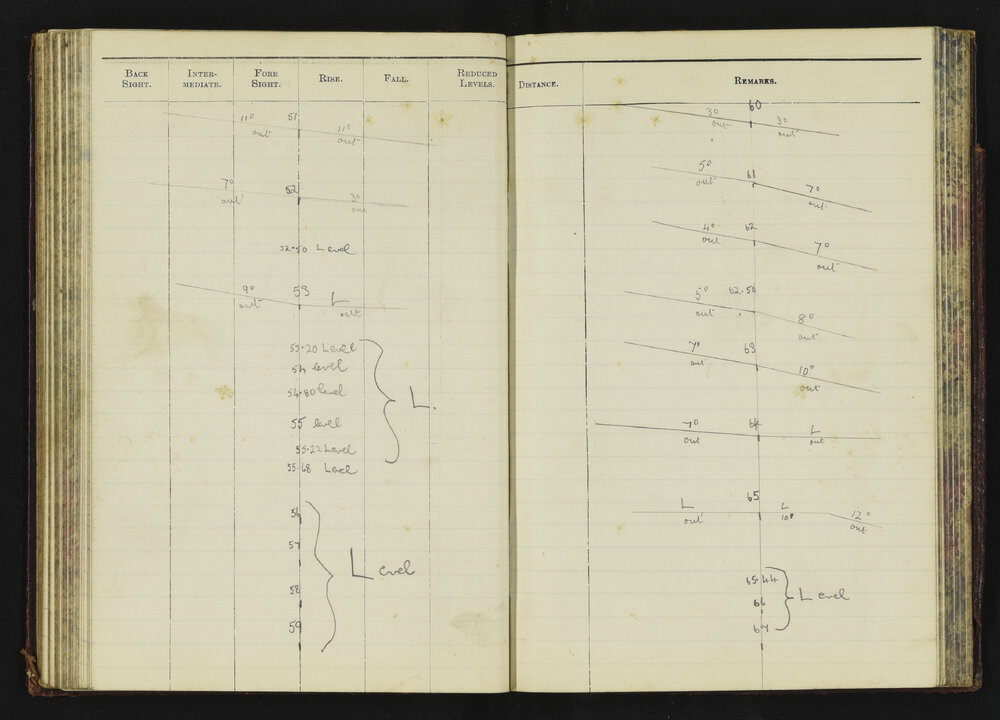 BACK SIGHT. INTER-MEDIATE. FORE SIGHT. RISE. FALL. REDUCED LEVELS.
11° 51 11°
out out
7° 52 3°
out out
52·50 Level
9° 53 L
out out
53·20 Level
54 level
54·80 level
L.
55 level
55·22 Level
55·68 Level
56
57
Level
58
59
DISTANCE. REMARKS.
3° 60 3°
out out
5° 61 7°
out out
4° 62 7°
out out
5° 62·50 8°
out out
7° 63 10°
out out
7° 64 L
out out
L 65 L 12°
out 10° out
65·44
66 Level
67